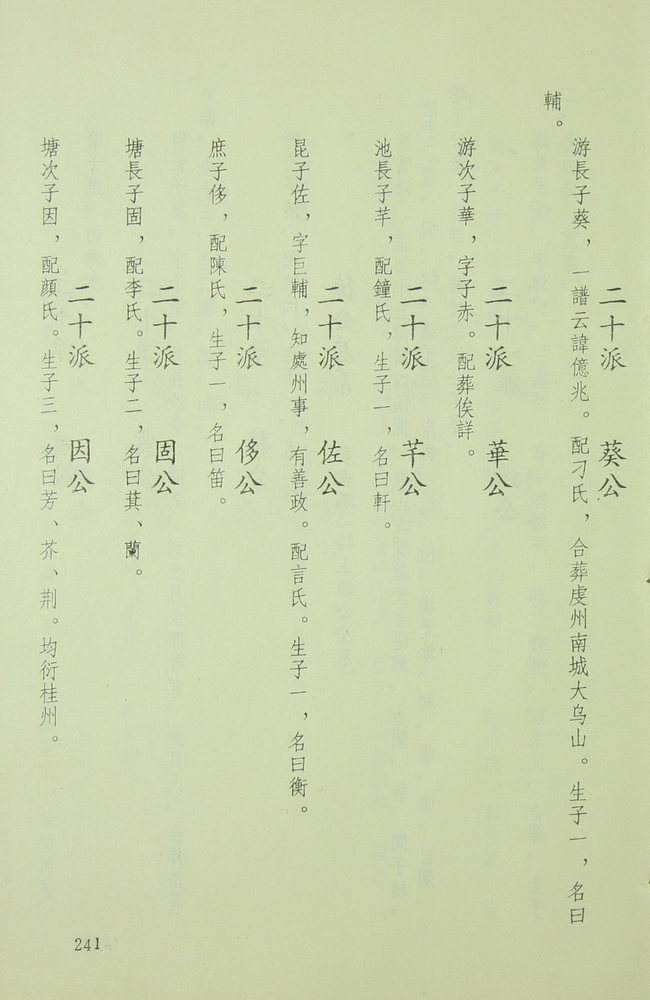 二十派　葵公
游長子葵，一譜云諱億兆。配刁氏，合葬虔州南城大乌山。生子一，名曰
輔。
二十派　華公
游次子華，字子赤。配葬俟詳。
二十派　芊公
池長子芊，配鐘氏，生子一，名曰軒。
二十派　佐公
昆子佐，字巨輔，知處州事，有善政。配言氏。生子一，名曰衡。
二十派　侈公
庶子侈，配陳氏，生子一，名曰笛。
二十派　固公
塘長子固，配李氏。生子二，名曰萁、蘭。
二十派　因公
塘次子因，配顔氏。生子三，名曰芳、芥、荆。均衍桂州。
241